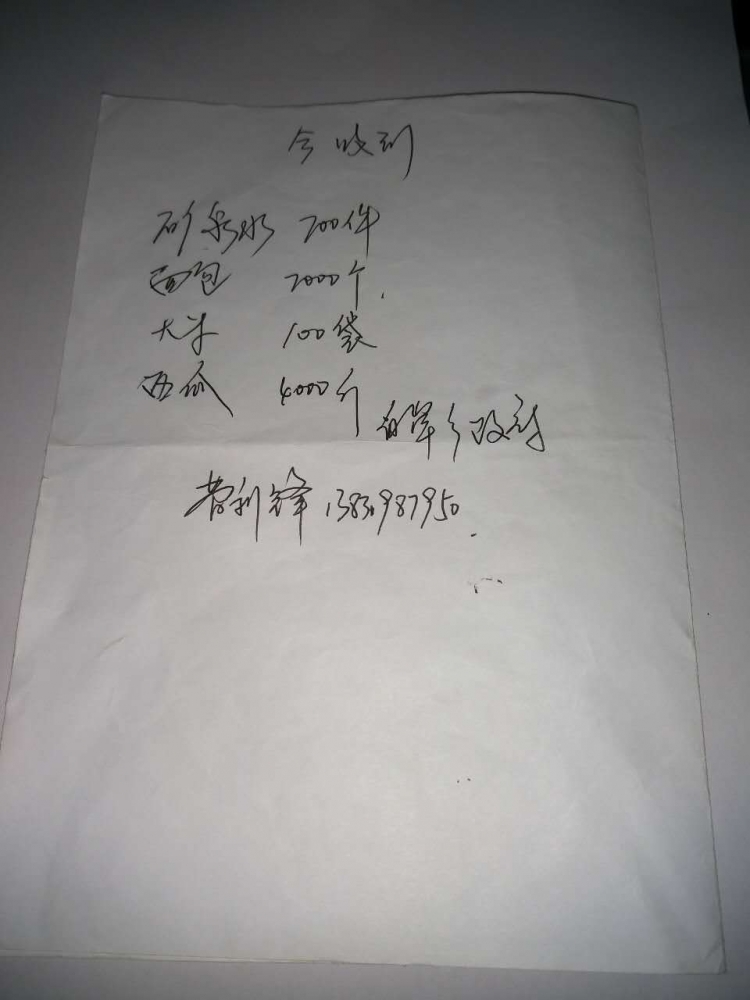 今收到
矿泉水 200件
面包 2000个
大米 100袋
西瓜 4000斤
乡政府
利锋